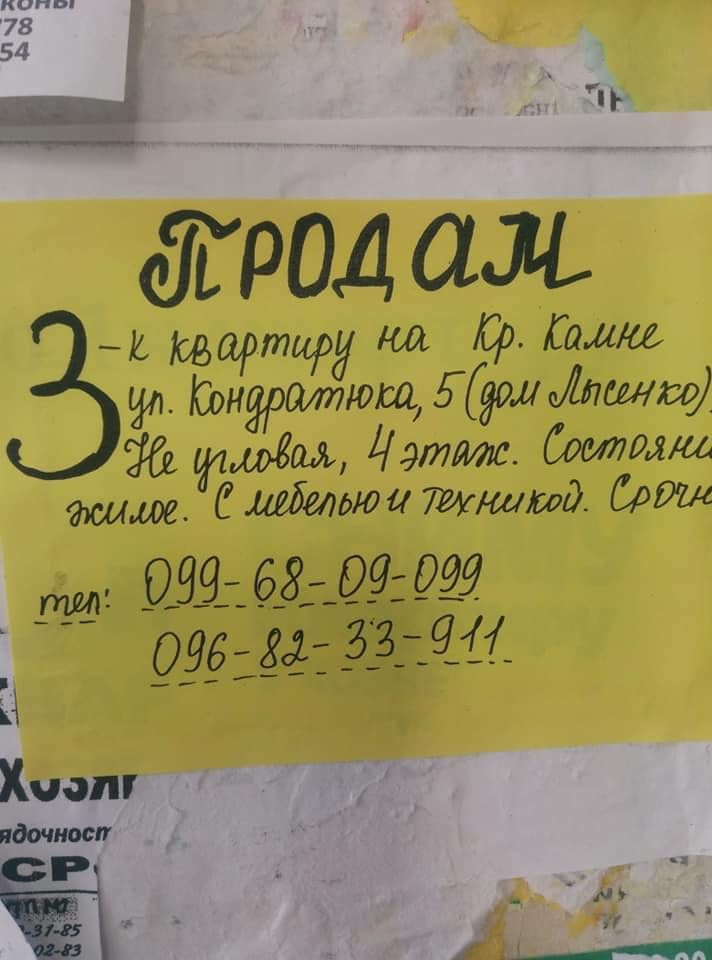 778
54
ПРОДАМ
3-к квартиру на Кр. Камне
ул. Кондратюка, 5 (дом Лысенко),
Не угловая, 4 этаж. Состояни
жилое. С мебелью и техникой. Срочн
тел: 099-68-09-099
096-82-33-911
ХОЗЯ
ядочност
СР
-31-85
02-83